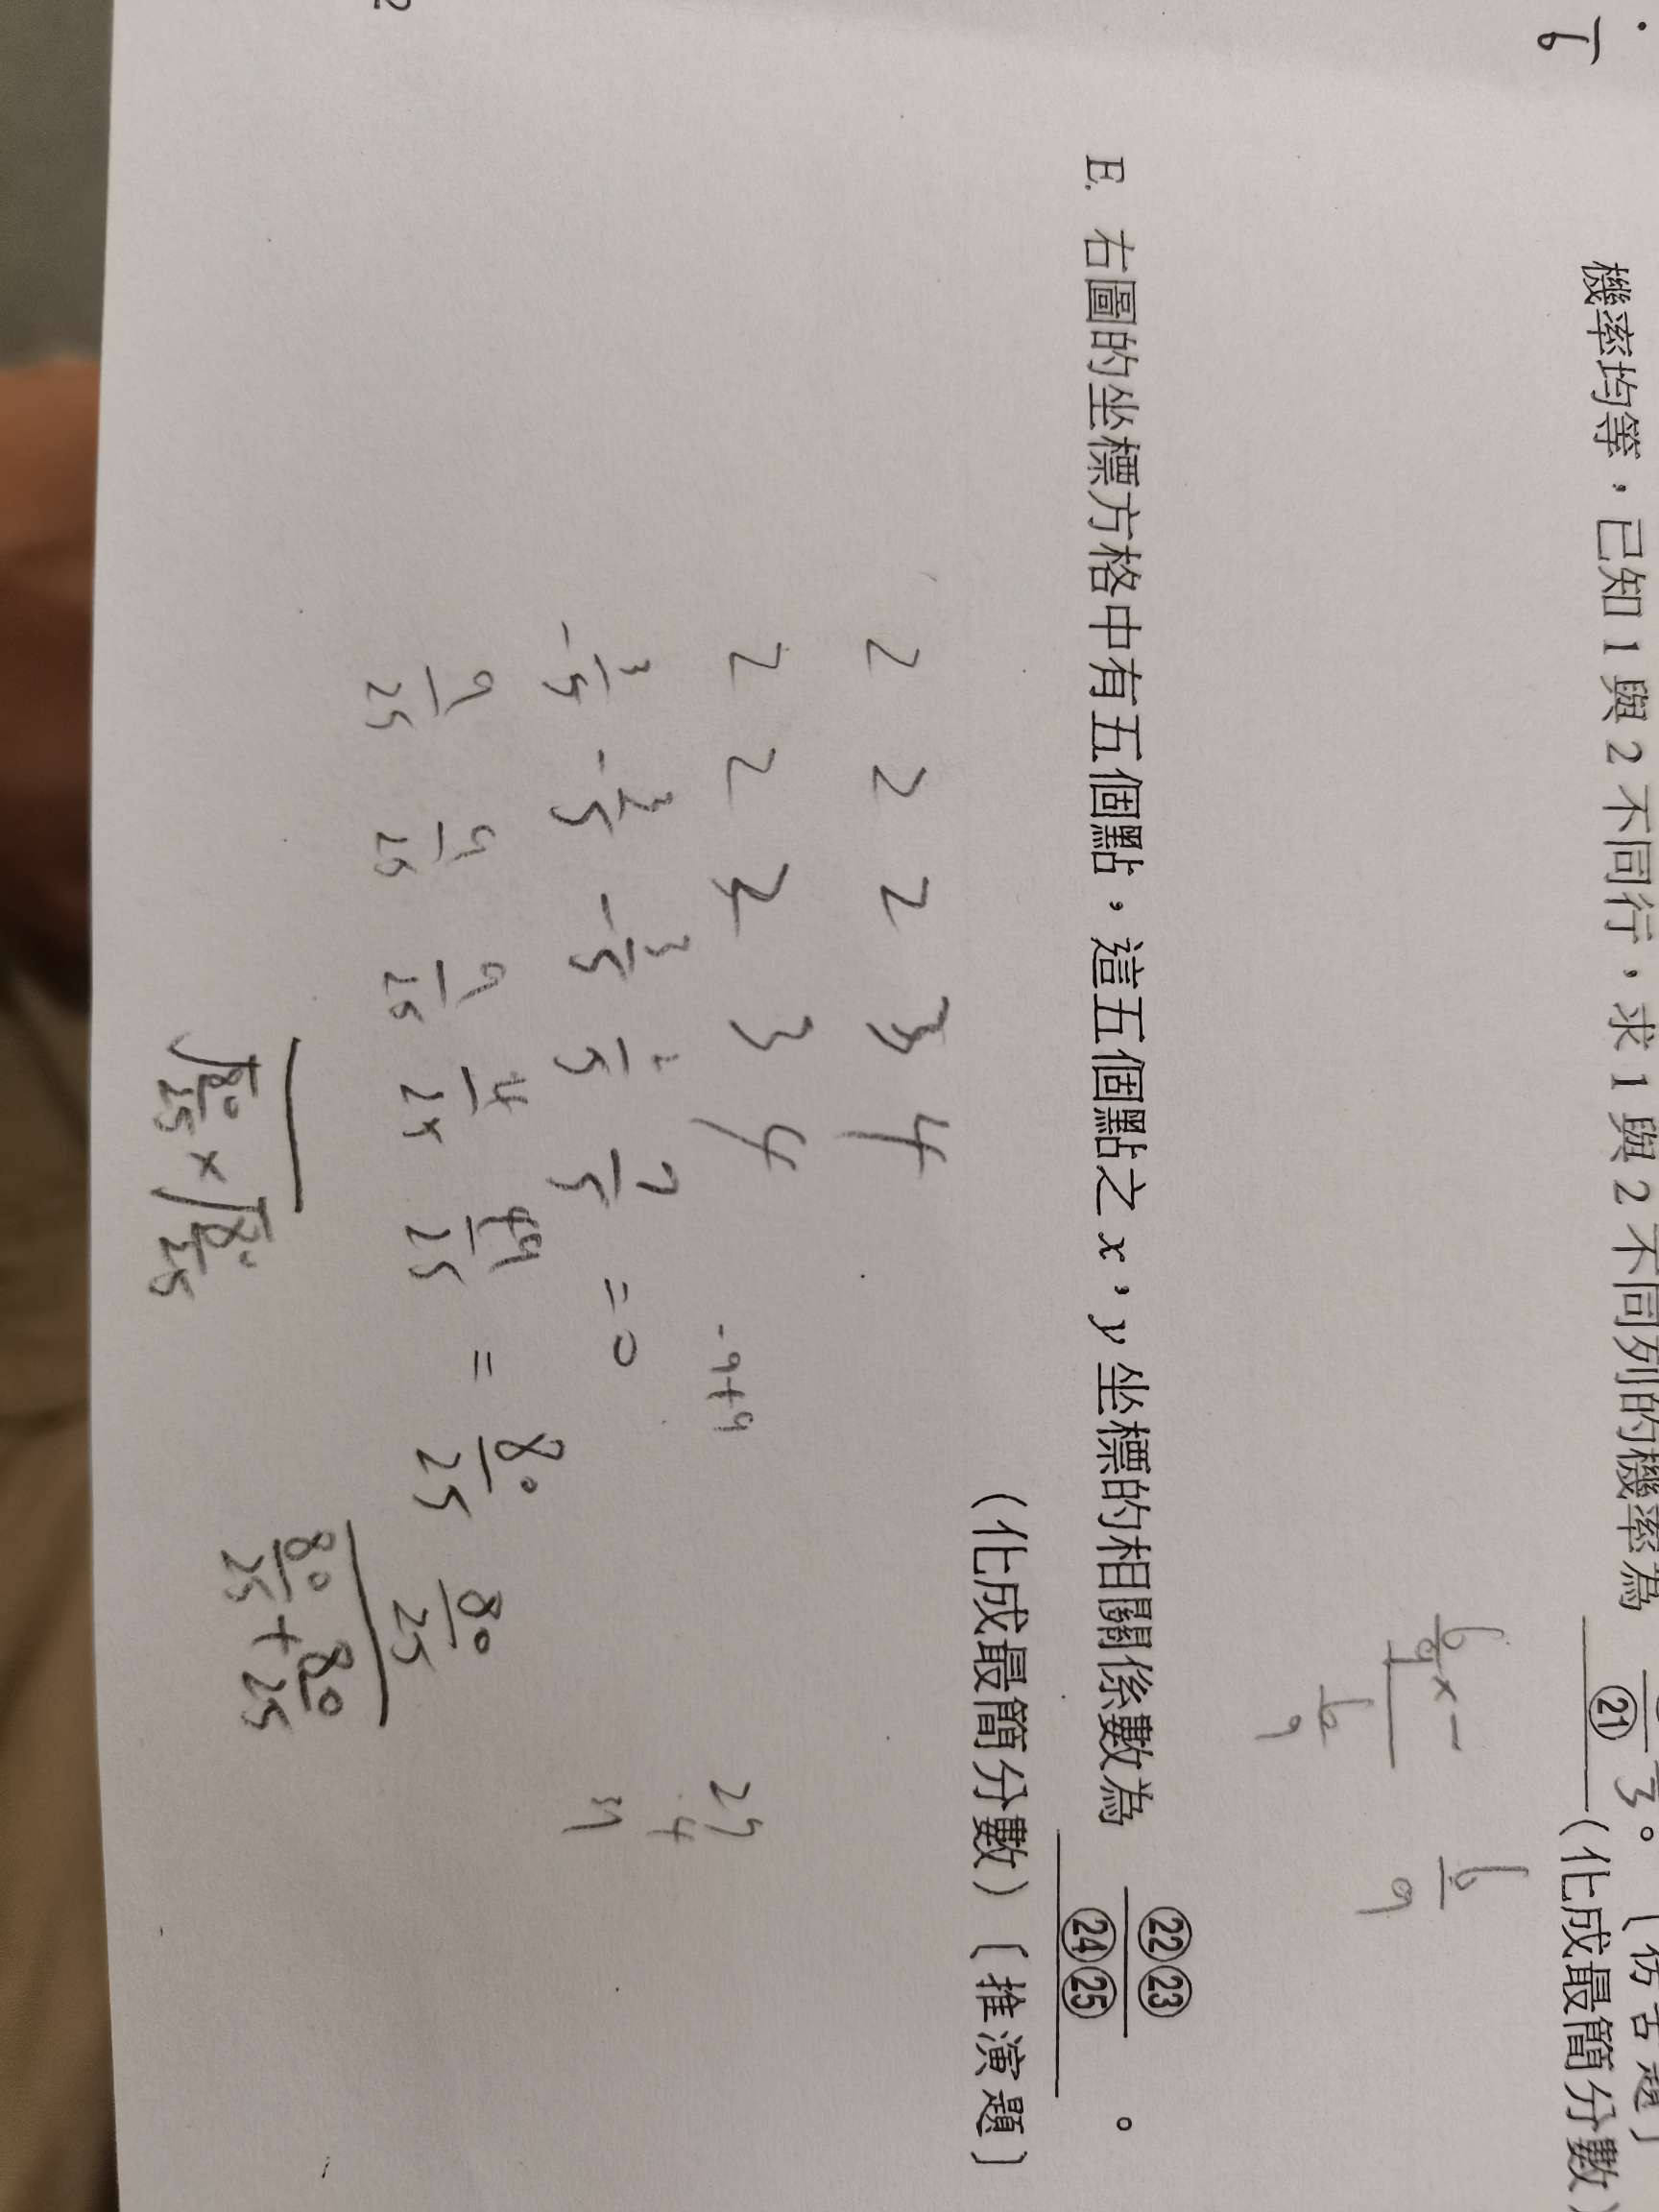 6
機率均等，已知 1 與 2 不同行，求 1 與 2 不同列的機率為
㉑ 3 。〔仿
(化成最簡分數)
6/9 × 1
6/9
6/9
E. 右圖的坐標方格中有五個點，這五個點之 x，y 坐標的相關係數為 ㉒㉓/㉔㉕ 。
(化成最簡分數)〔推演題〕
2 2 2 3 4
2 2 2 3 4
-9+9
-3/5 -3/5 -3/5 2/5 7/5 = 0
9/25 9/25 9/25 4/25 49/25 = 80/25
27
4
31
80/25
80/25 + 80/25
√80/25 × √80/25
2